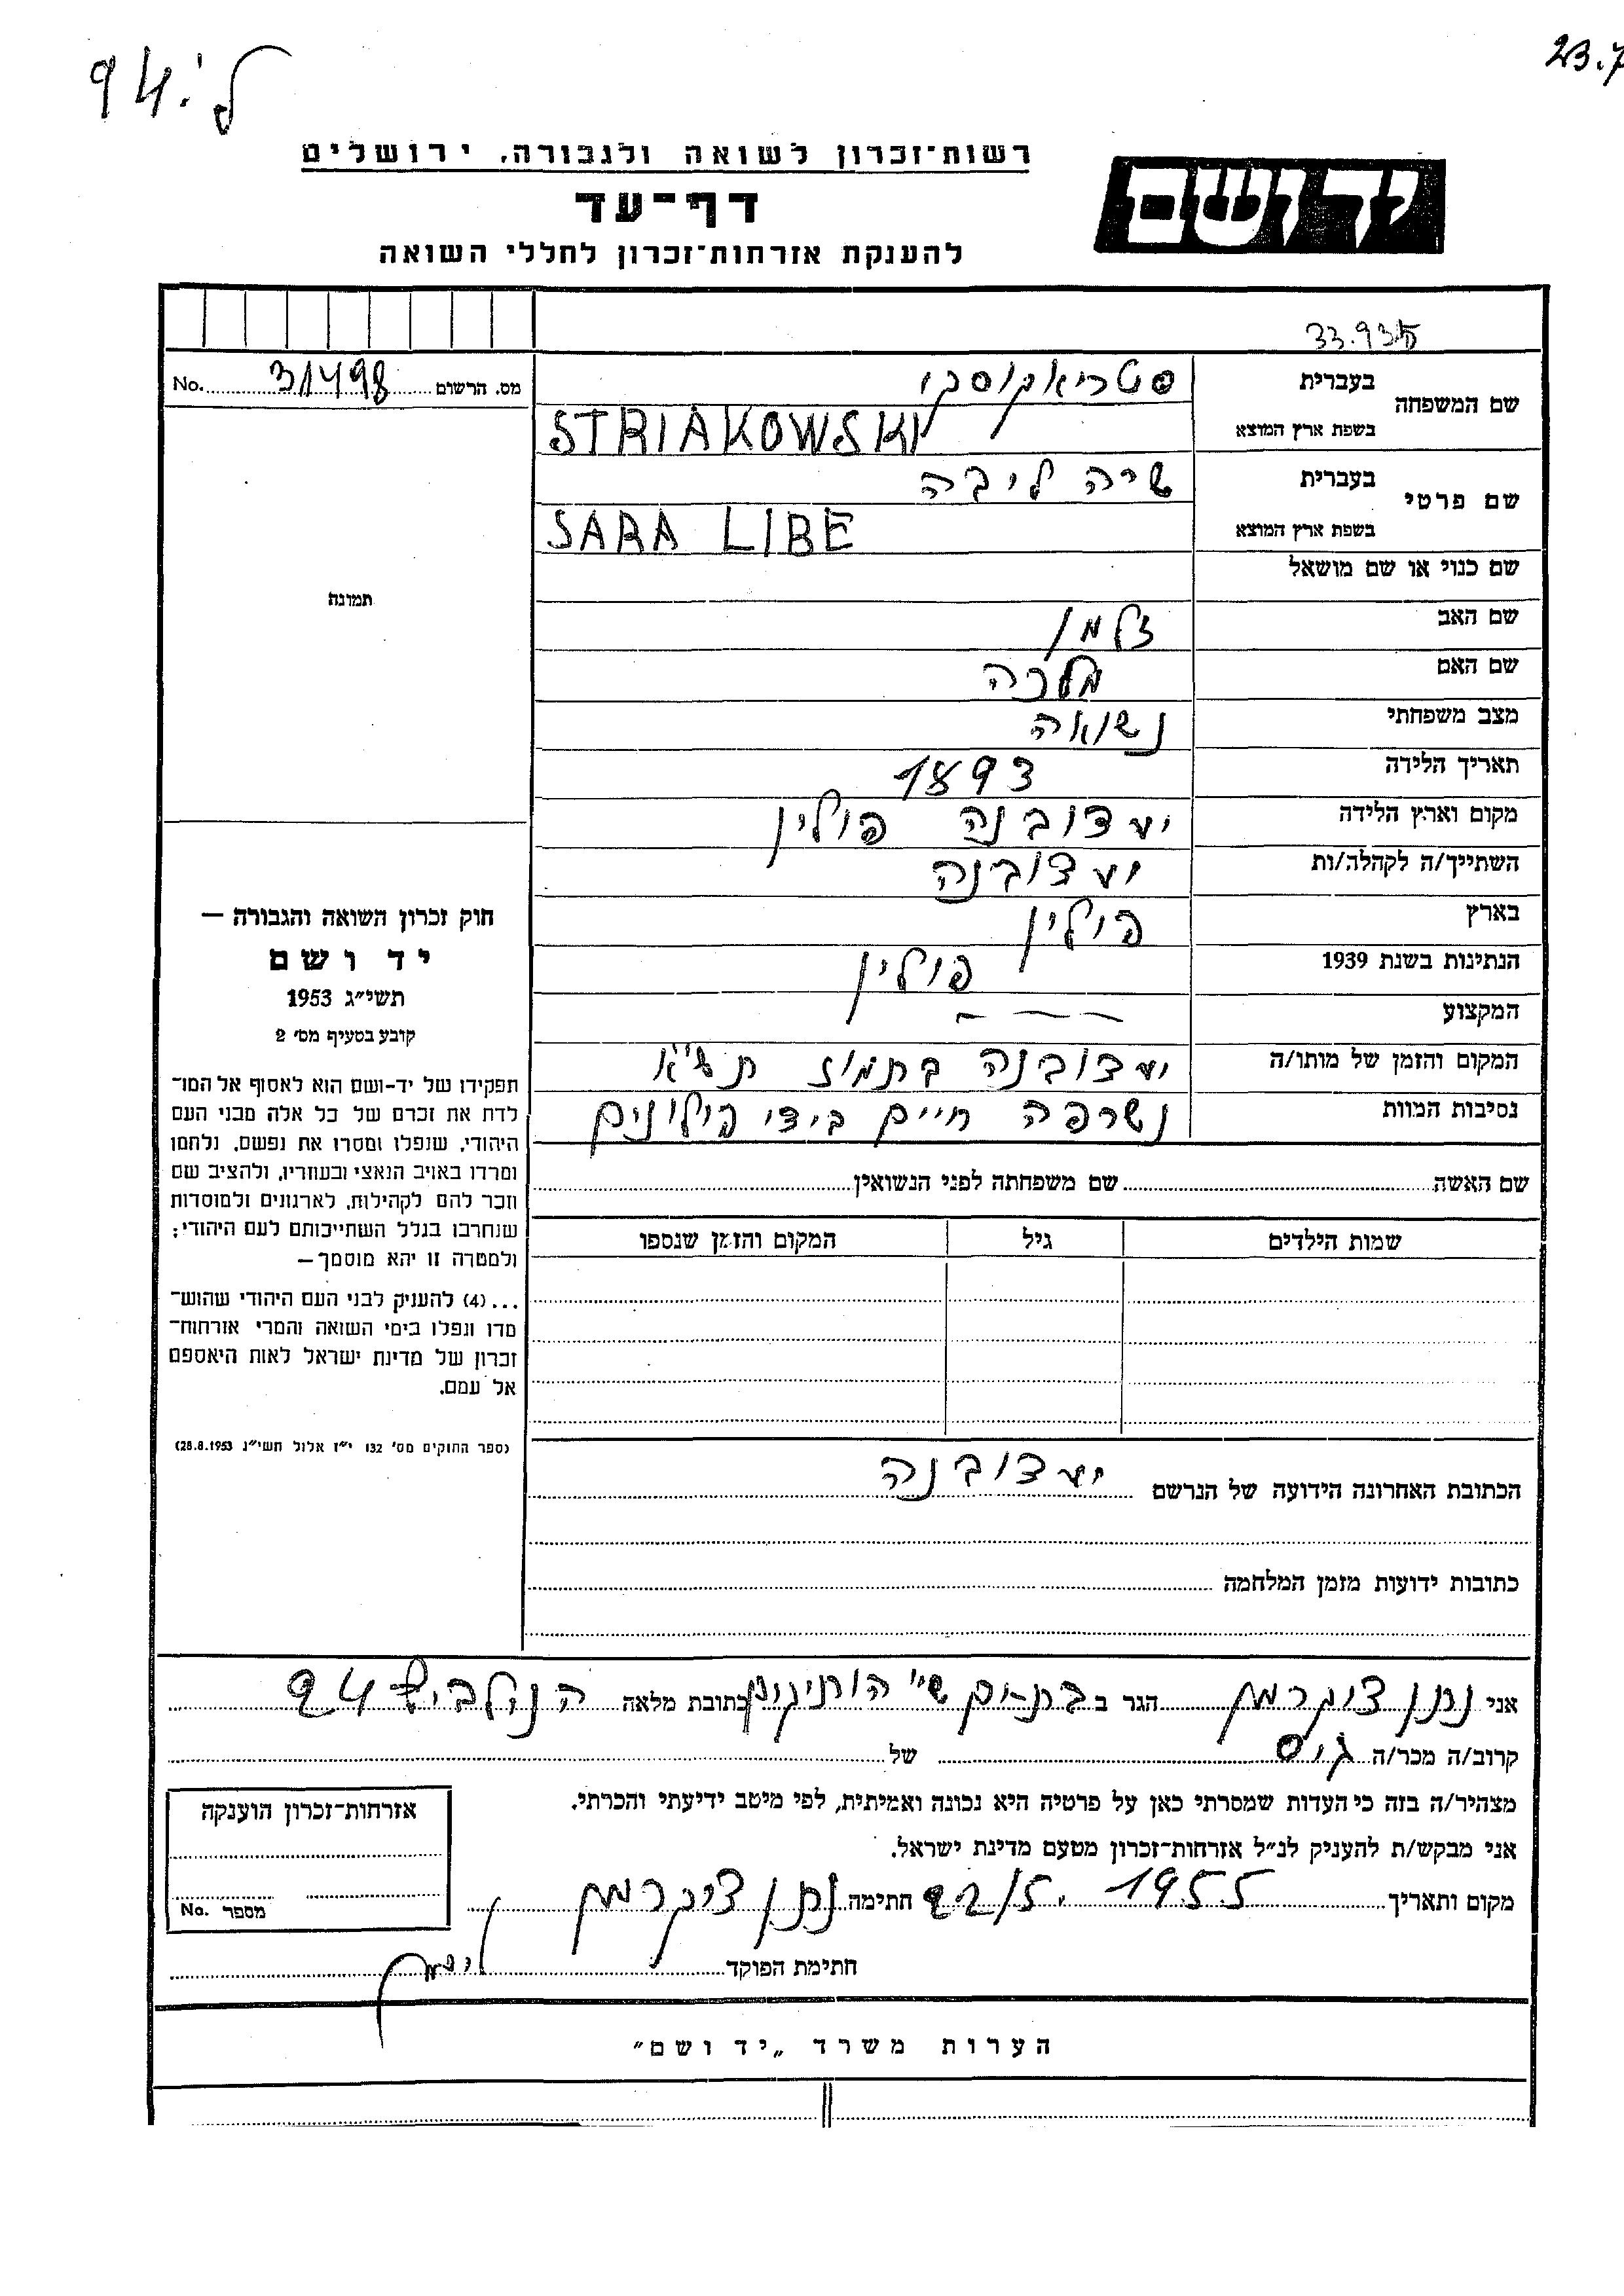 94. ל'
23.7
רשות־זכרון לשואה ולגבורה, ירושלים
יד ושם
דף־עד
להענקת אזרחות־זכרון לחללי השואה
33.935
No. 31498 מס. הרשום
שם המשפחה
בעברית סטריאקוסקי
בשפת ארץ המוצא STRIAKOWSKI
שם פרטי
בעברית שרה ליבה
בשפת ארץ המוצא SARA LIBE
שם כנוי או שם מושאל
תמונה
שם האב זלמן
שם האם מלכה
מצב משפחתי נשואה
תאריך הלידה 1893
מקום וארץ הלידה יעדובנה פולין
השתייך/ה לקהלה/ות יעדובנה
בארץ פולין
הנתינות בשנת 1939 פולין
המקצוע
המקום והזמן של מותו/ה יעדובנה בתמוז תש"א
נסיבות המוות נשרפה חיים בידי פולונים
שם האשה שם משפחתה לפני הנשואין
שמות הילדים גיל המקום והזמן שנספו
חוק זכרון השואה והגבורה —
יד ושם
תשי״ג 1953
קובע בסעיף מס׳ 2
תפקידו של יד-ושם הוא לאסוף אל המו־
לדת את זכרם של כל אלה מבני העם
היהודי, שנפלו ומסרו את נפשם, נלחמו
ומרדו באויב הנאצי ובעוזריו, ולהציב שם
וזכר להם לקהילות, לארגונים ולמוסדות
שנחרבו בגלל השתייכותם לעם היהודי;
ולמטרה זו יהא מוסמך—
...(4) להעניק לבני העם היהודי שהוש־
מדו ונפלו בימי השואה והמרי אזרחות־
זכרון של מדינת ישראל לאות היאספם
אל עמם.
(ספר החוקים מס׳ 132 י״ז אלול תשי״ג 28.8.1953)
הכתובת האחרונה הידועה של הנרשם יעדובנה
כתובות ידועות מזמן המלחמה
אני נתן צוקרמן הגר ב בת-ים ש"י הותיקים כתובת מלאה 94
קרוב/ה מכר/ה גיס של
מצהיר/ה בזה כי העדות שמסרתי כאן על פרטיה היא נכונה ואמיתית, לפי מיטב ידיעתי והכרתי.
אני מבקש/ת להעניק לנ״ל אזרחות־זכרון מטעם מדינת ישראל.
מקום ותאריך 22/5. 1955 חתימה נתן צוקרמן
חתימת הפוקד
אזרחות־זכרון הוענקה
No. מספר
הערות משרד „יד ושם״